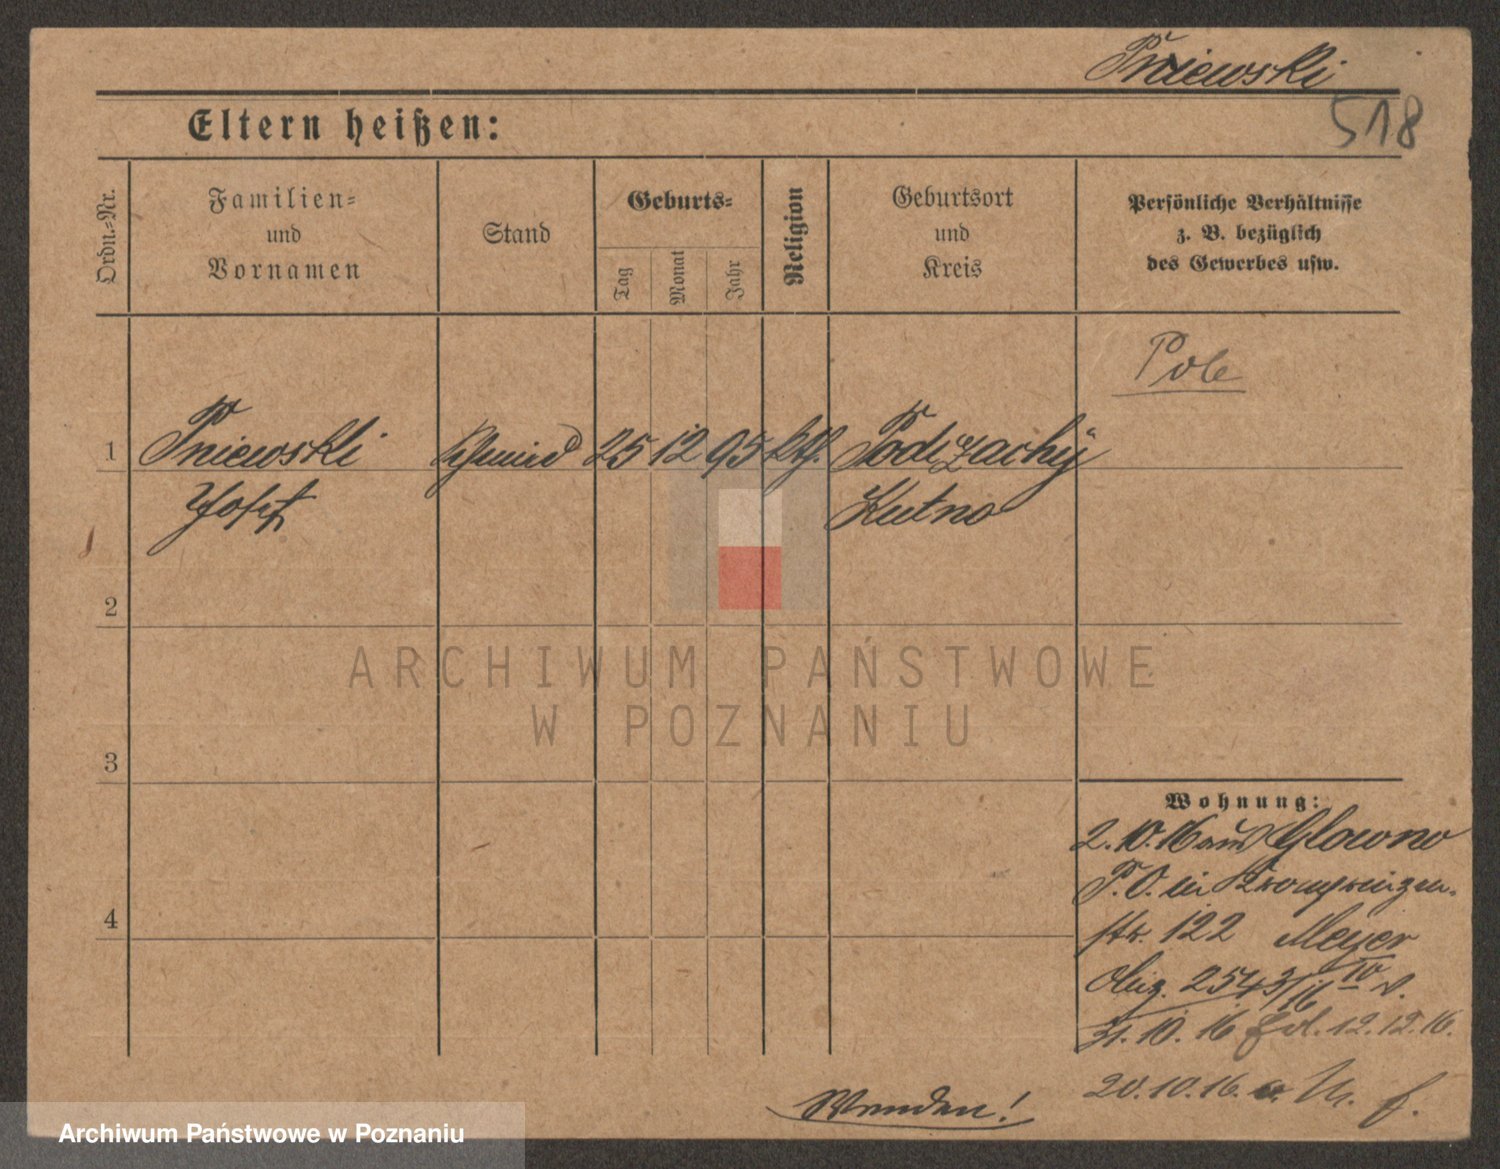 Pniewski
518
Eltern heißen:
Ordn.-Nr.
Familien-
und
Vornamen
Stand
Geburts-
Tag
Monat
Jahr
Religion
Geburtsort
und
Kreis
Persönliche Verhältnisse
z. B. bezüglich
des Gewerbes usw.
Pole
1 Pniewski Schmied 25 12 95 kth.
Josef Kutno
2
3
4
ARCHIWUM PAŃSTWOWE
W POZNANIU
Wohnung:
2.10.16 aus Glowno
P.O. in Kronprinzen-
str. 122 Meyer
2543/16 IV
31.10.16 12.12.16.
20.10.16.
Wenden!
Archiwum Państwowe w Poznaniu